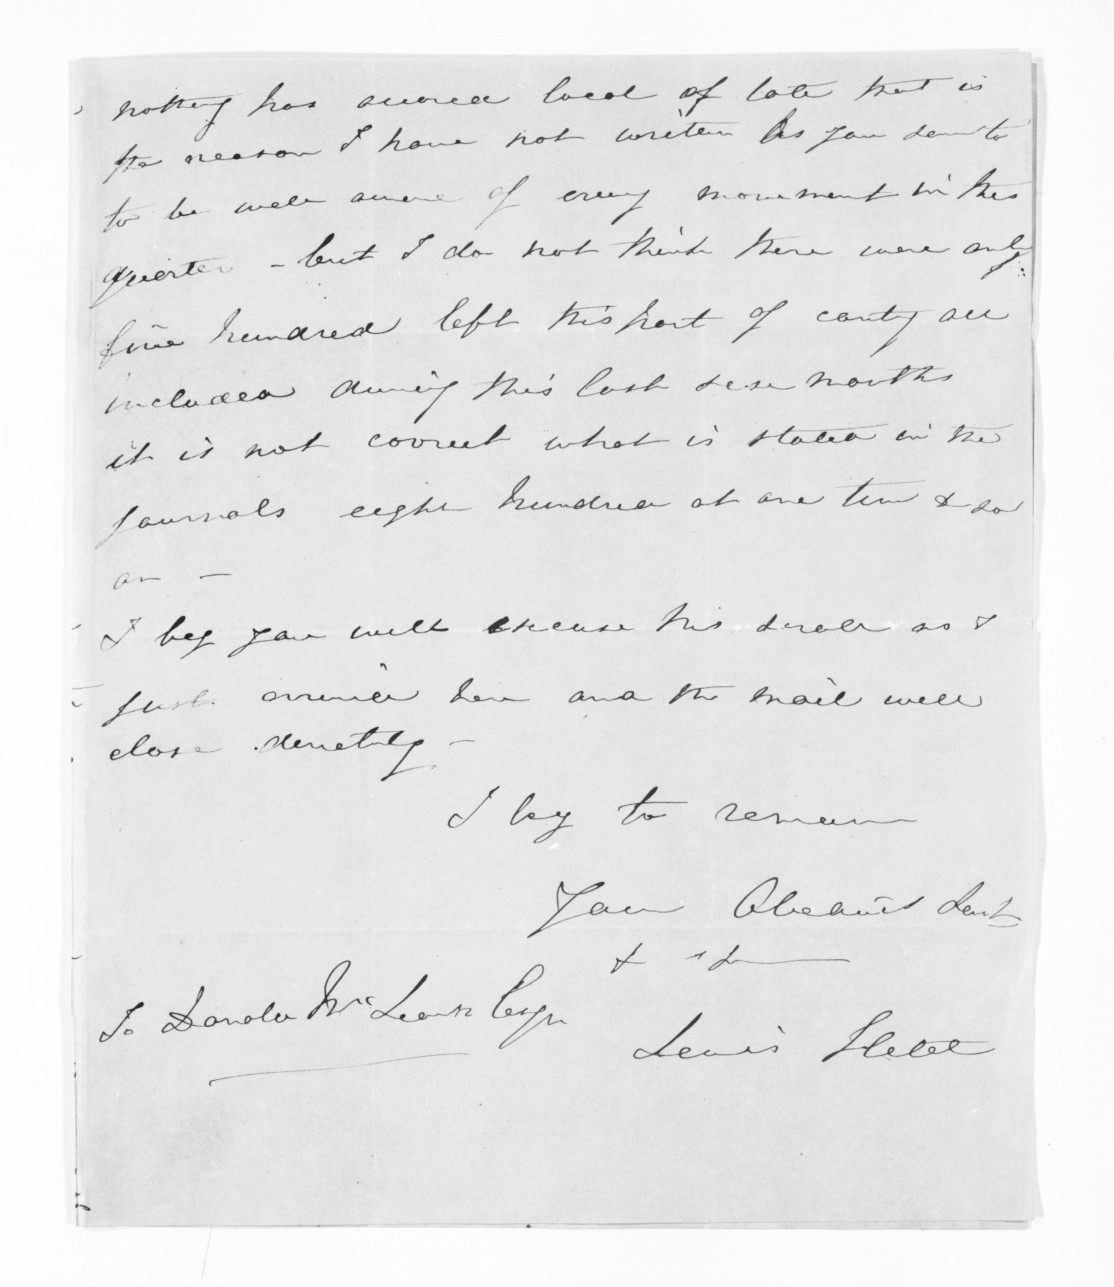 nothing has occured local of late that is
the reason I have not written As you seem to
to be well aware of every movement in this
quarter - but I do not think there were only
five hundred left this part of cauty all
included during this last six months
it is not correct what is stated in the
Journals eight hundred at one time & so
on -
I beg you will excuse this scrole as I
just arrived here and the mail will
close directly -
I beg to remain
Your Obedient Servt
&
To Donald McLean Esqr
Lewis Hetet